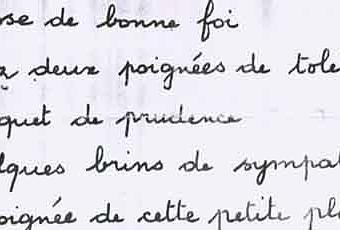 se de bonne foi
deux poignées de tolé
quet de prudence
lques brins de sympat
oignée de cette petite pl